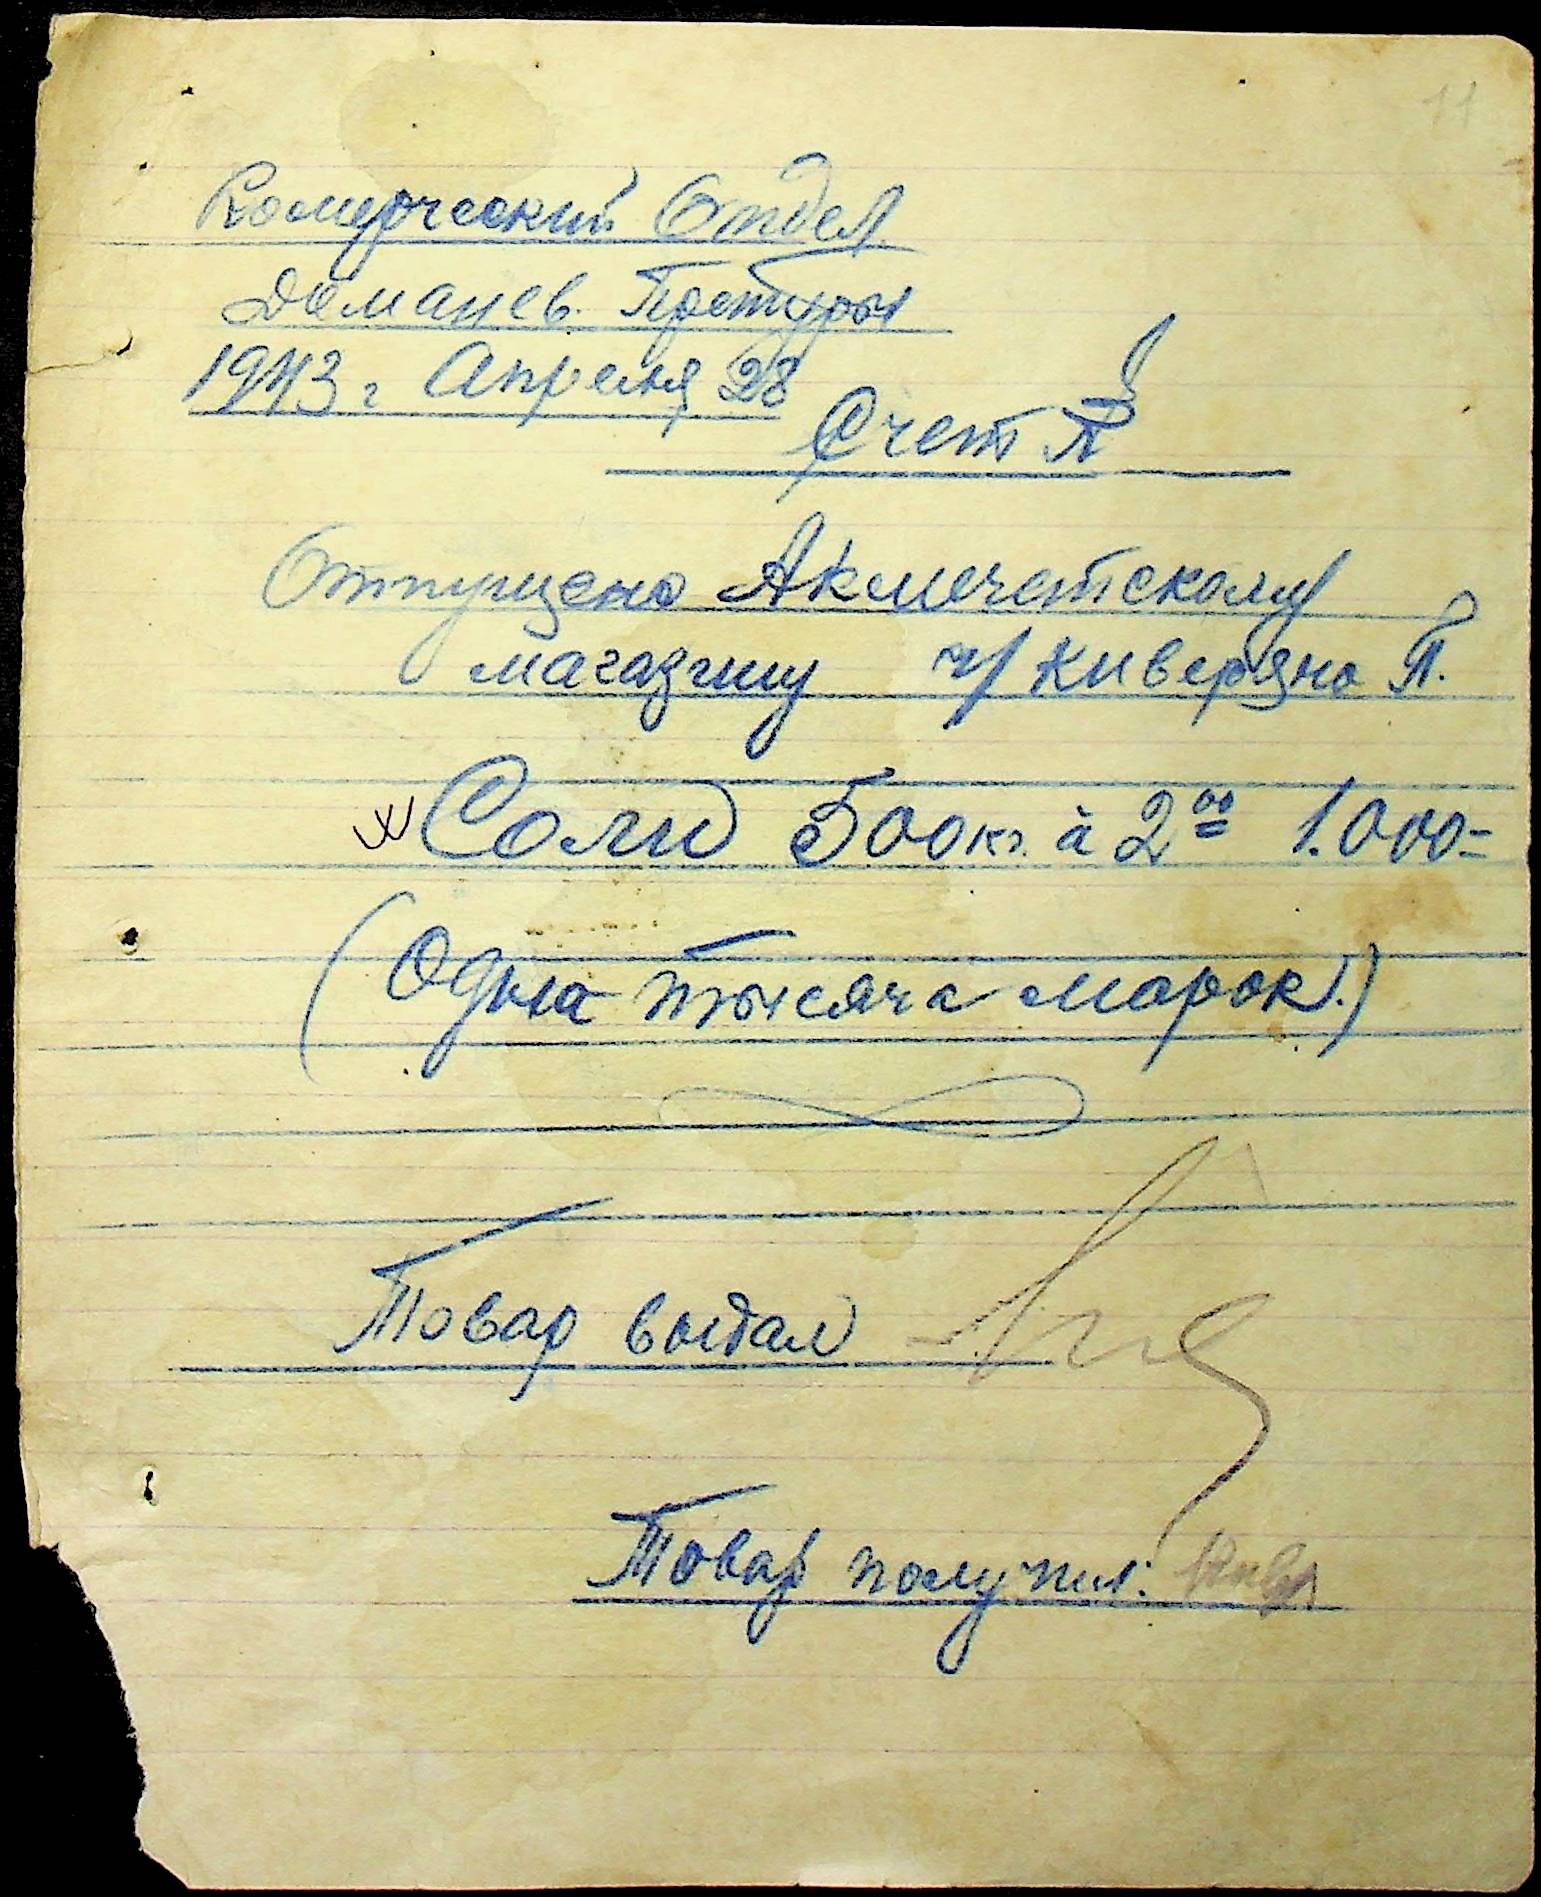 11
Комерческий Отдел
Доманев. Претуры
1943 г Апреля 28
Счет
Отпущено Акмечетскому
магазину ч/ Киверяно П.
Соли 500кг. à 2 00 1.000=
(Одна тысяча марок.)
Товар выдал
Товар получил: